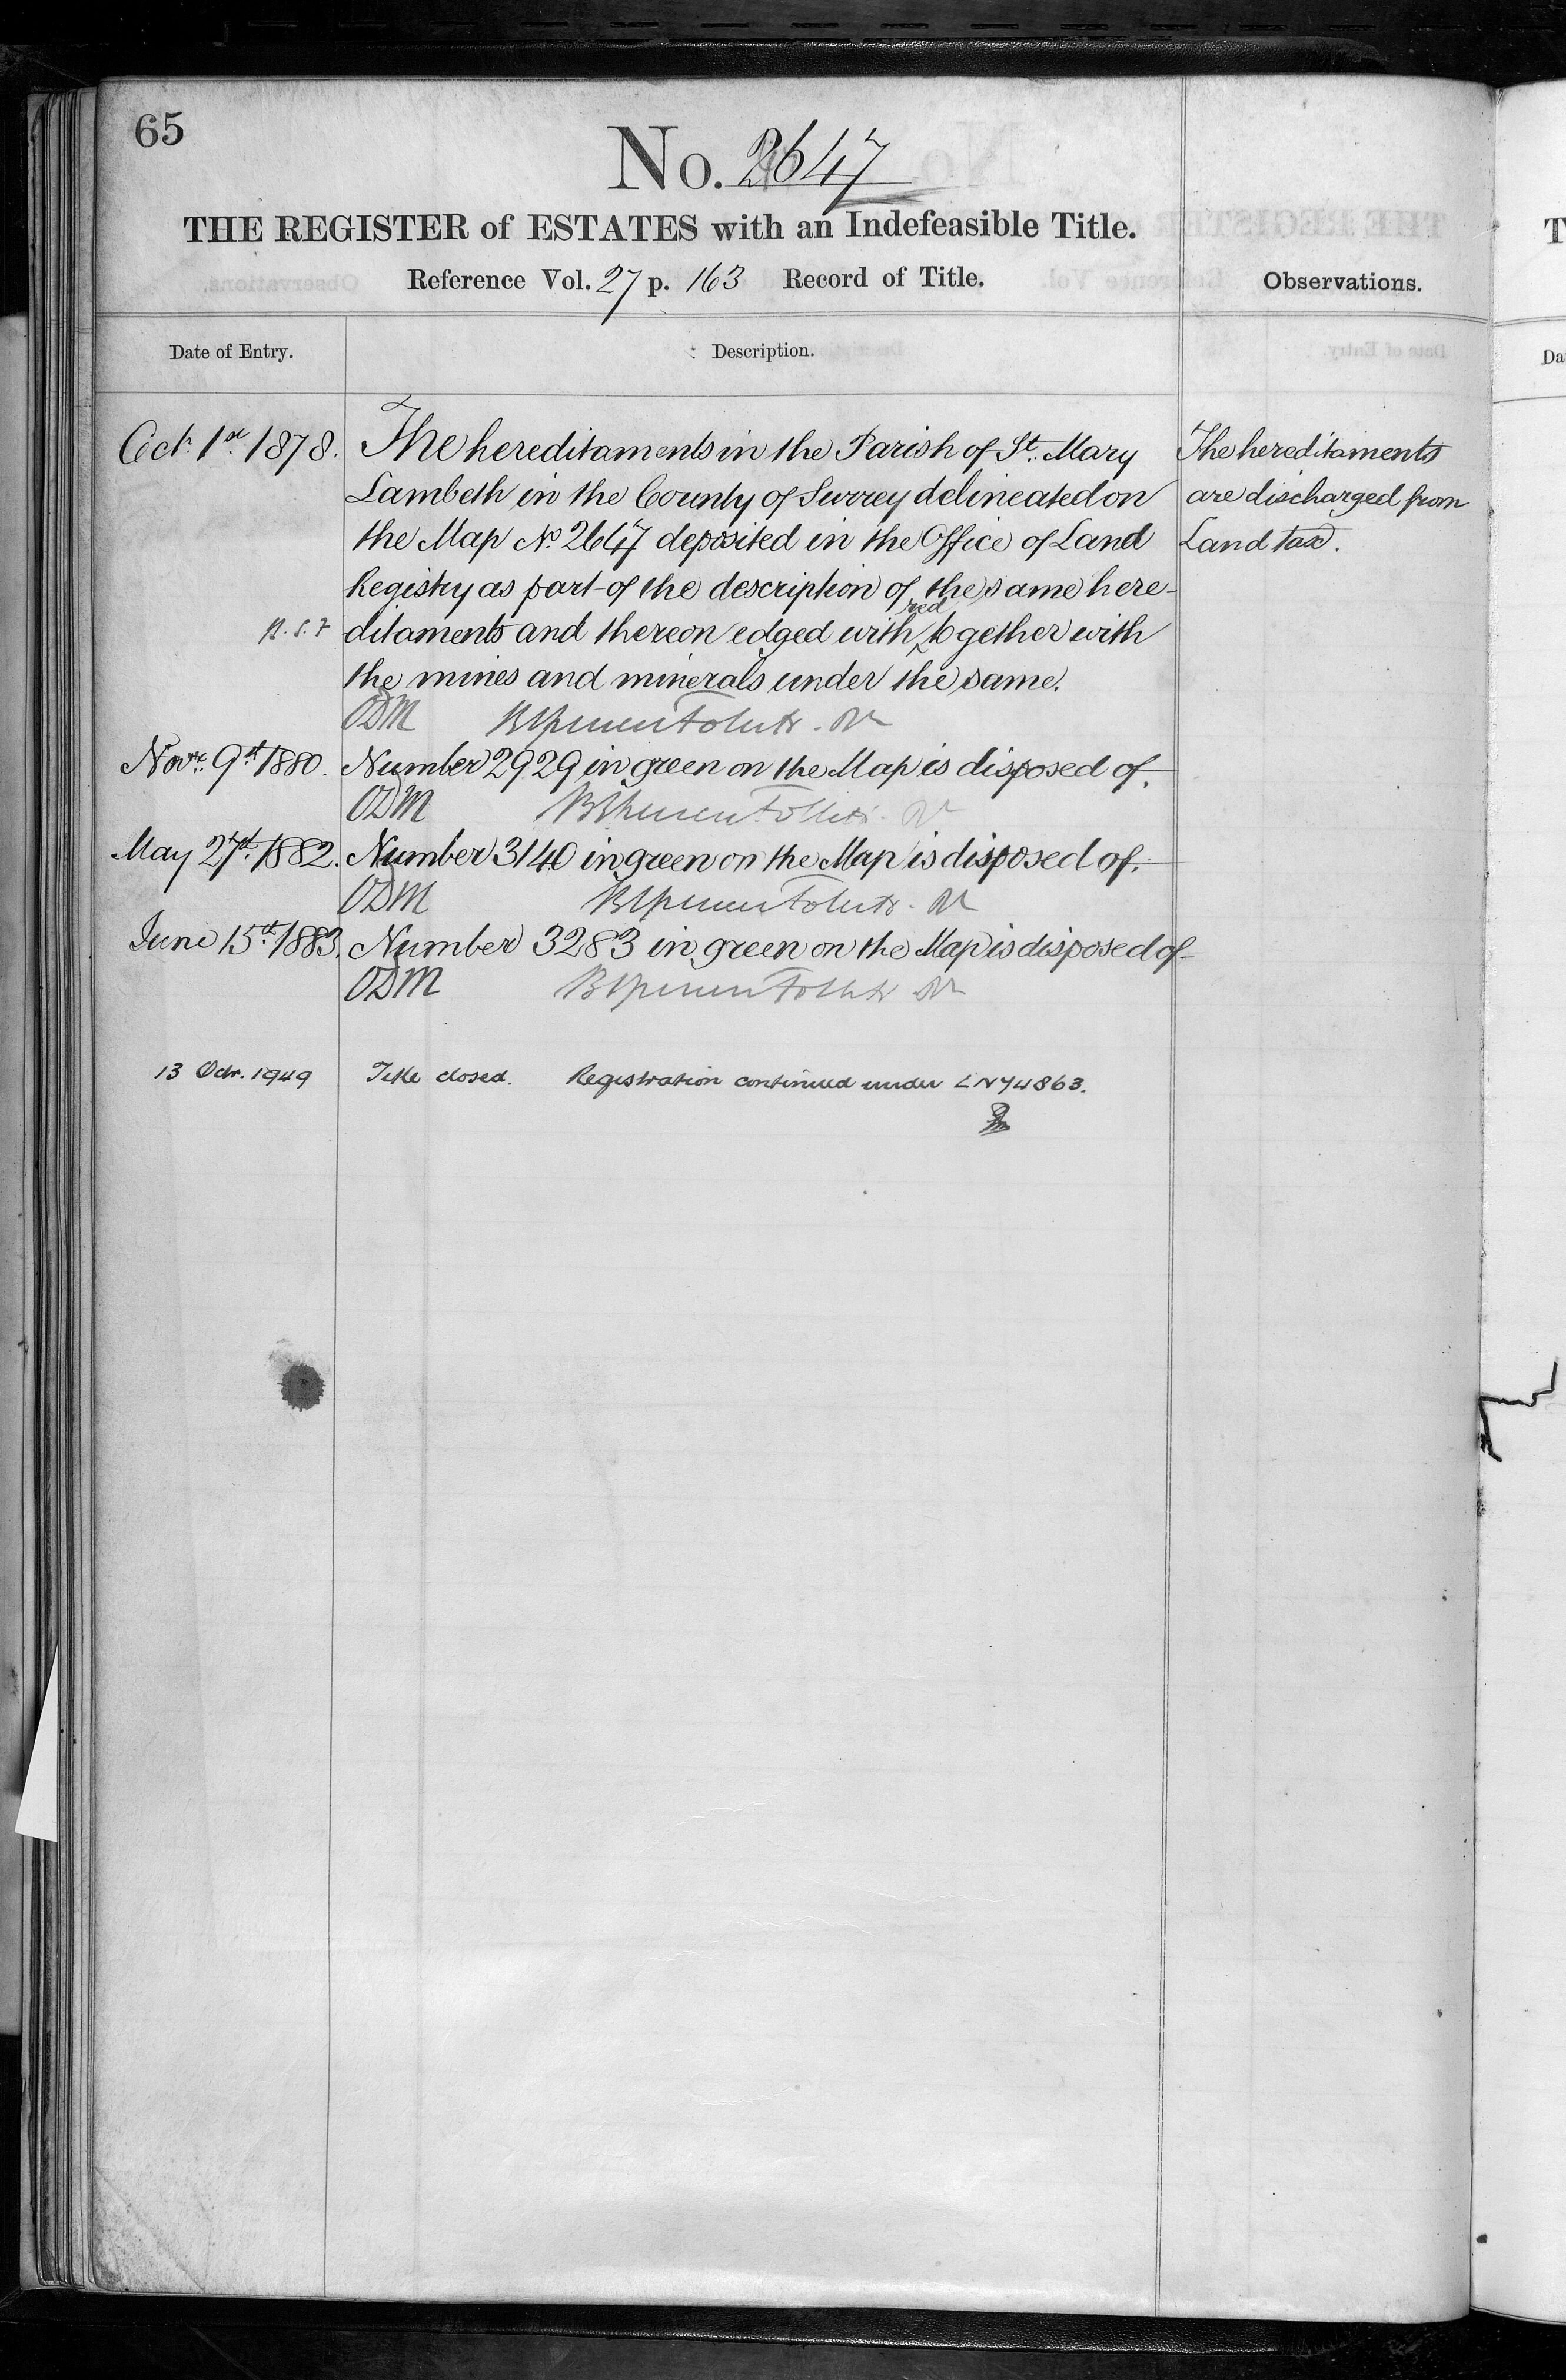 65
No. 2647
THE REGISTER of ESTATES with an Indefeasible Title.
Reference Vol. 27 p. 163 Record of Title.
Observations.
Date of Entry.
Description.
Octr. 1st. 1878.
The hereditaments in the Parish of St. Mary
Lambeth in the County of Surrey delineated on
the Map No. 2647 deposited in the Office of Land
Registry as part of the description of the same here-
ditaments and thereon edged with red together with
the mines and minerals under the same.
ODM
The hereditaments
are discharged from
Land tax.
Novr. 9th. 1880.
Number 2929 in green on the Map is disposed of.
ODM
May 27th. 1882.
Number 3140 in green on the Map is disposed of.
ODM
June 15th. 1883.
Number 3283 in green on the Map is disposed of
ODM
13 Octr. 1949
Title closed. Registration continued under LN74863.
T
Da